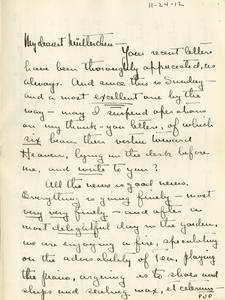 11-24-12
My dearest Mütterchen
Your recent letters
have been thoroughly appreciated, as
always. And since this is Sunday –
and a most excellent one by the
way – may I suspend operations
on my thank-you letters, of which
six beam their virtue toward
Heaven, lying on the desk before
me, and write to you?
All the news is good news.
Everything is going finely – most
very very finely – and after a
most delightful day in the garden,
we are enjoying a fire, speculating
on the advisability of tea, playing
the piano, arguing as to shoes and
ships and sealing wax, et ceterum –
PJP